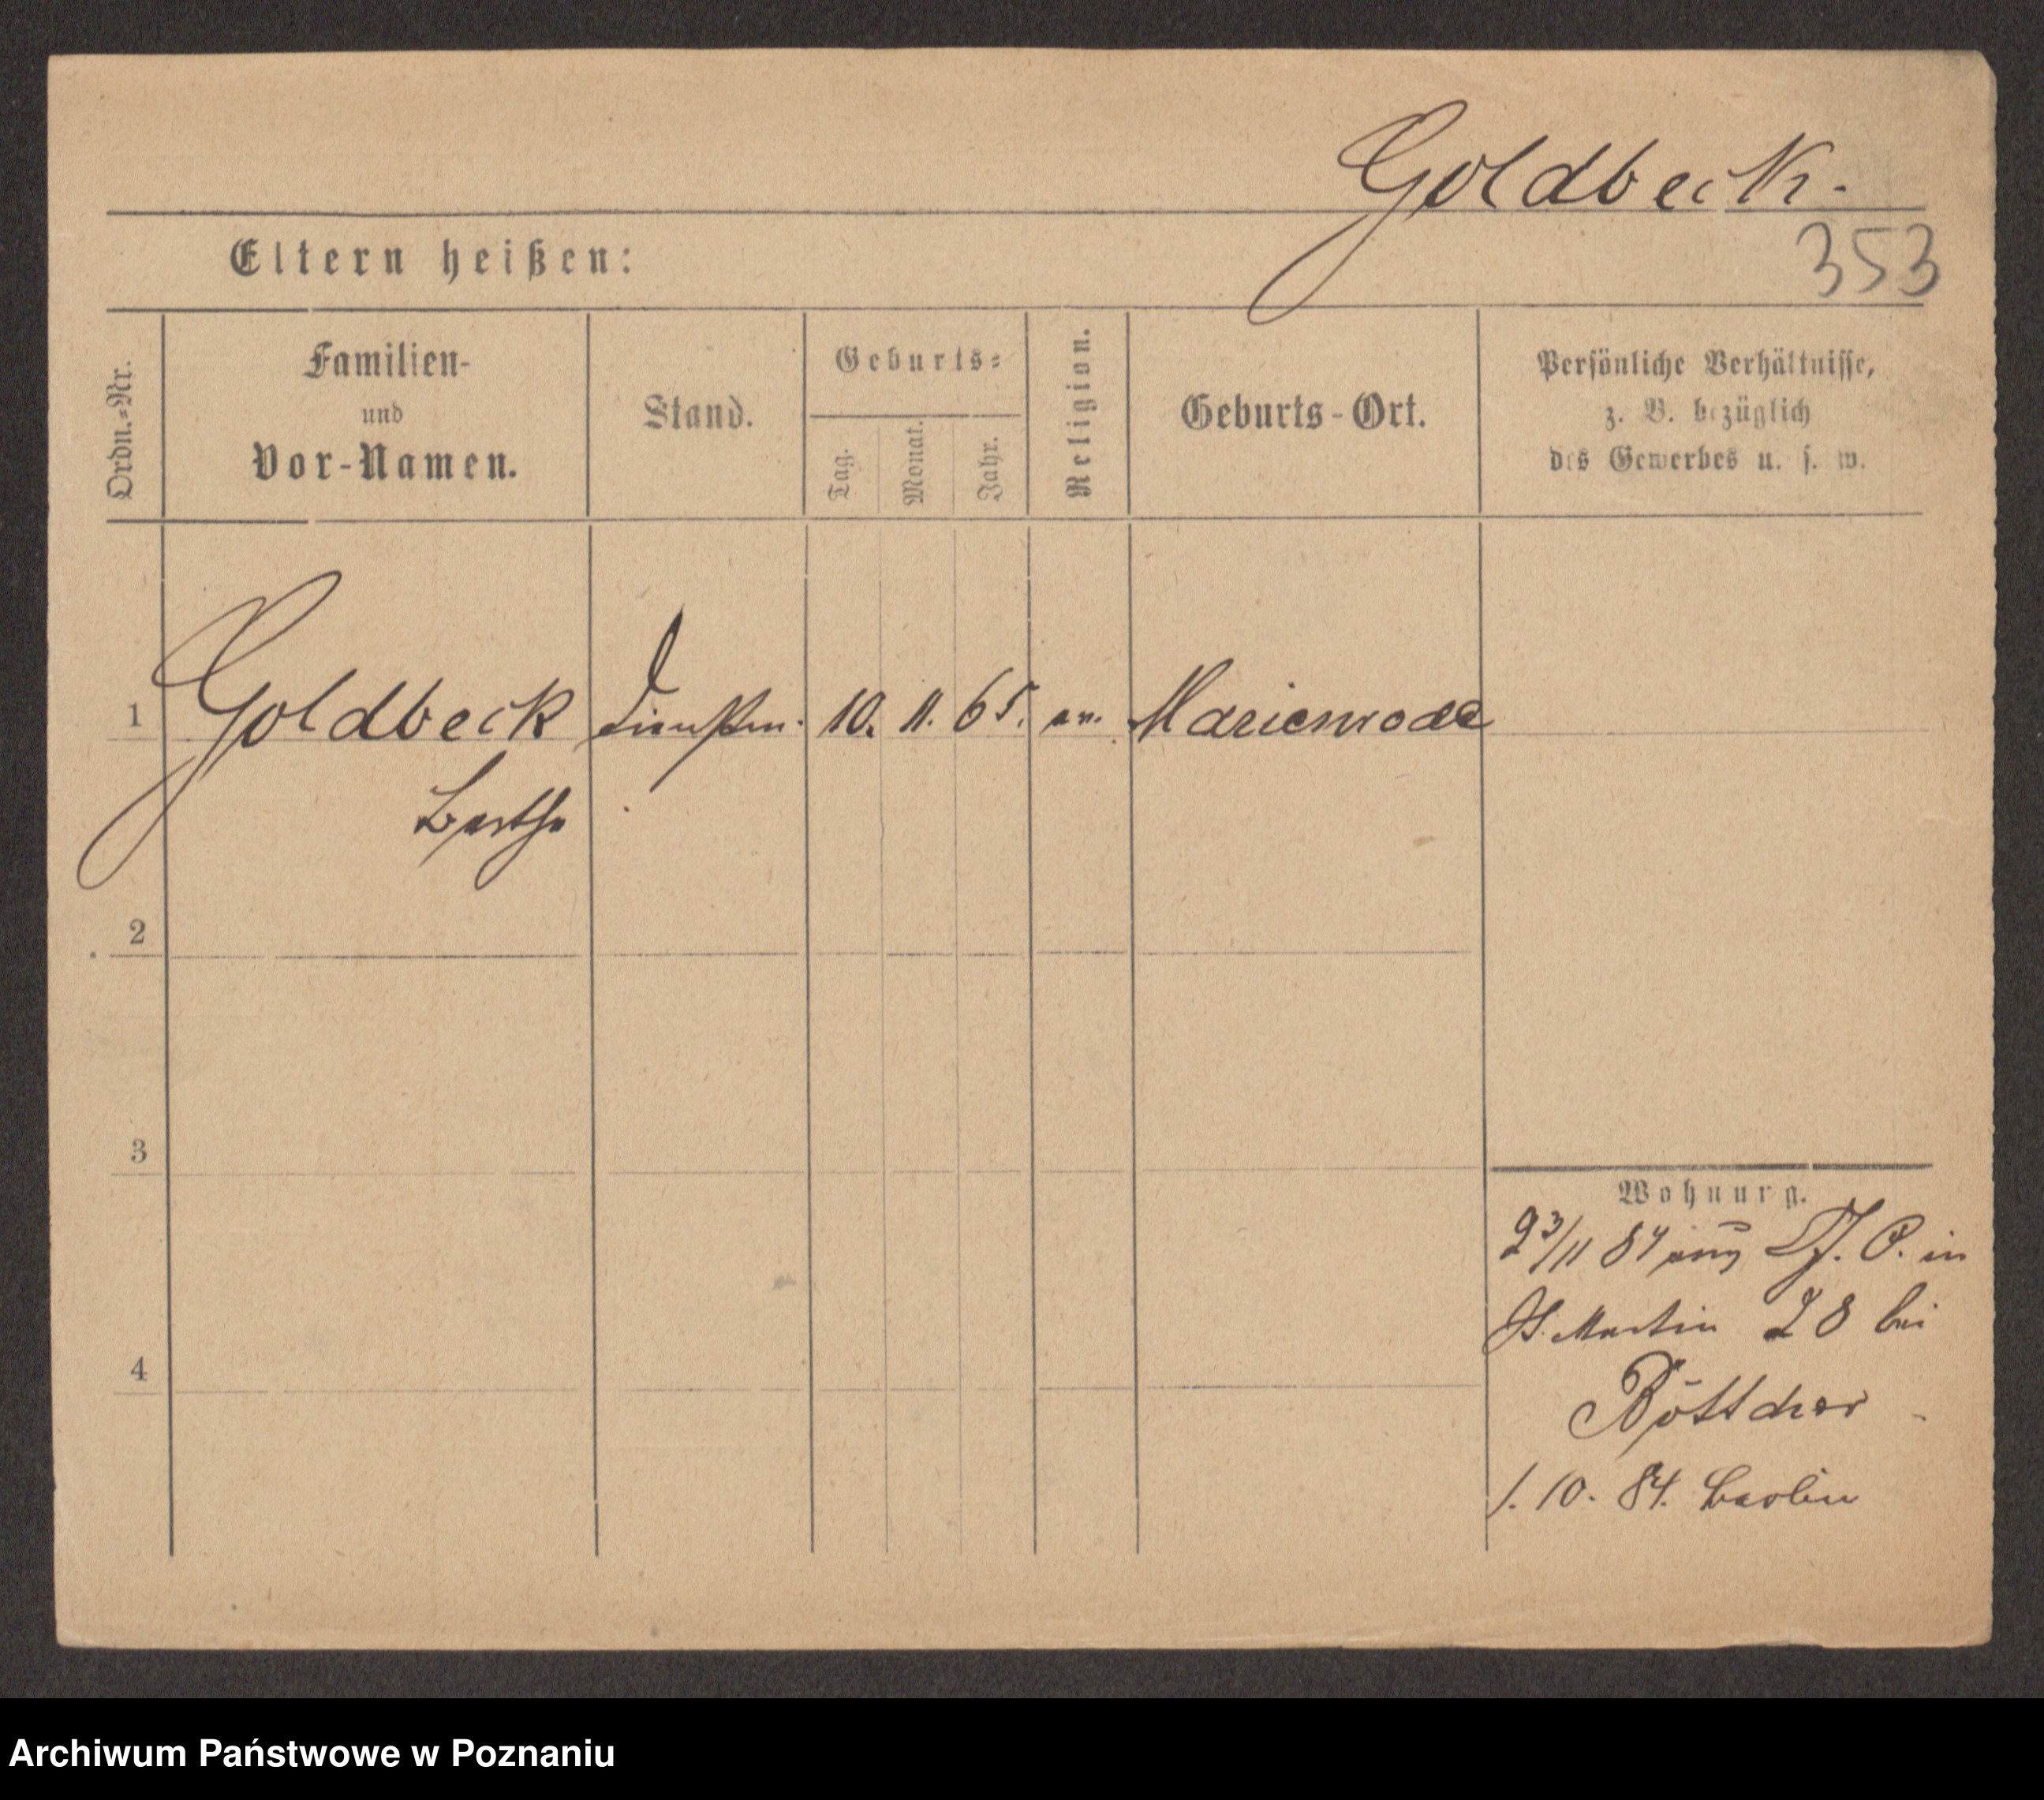 Goldbeck.
353
Eltern heißen:
Ordn.=Nr.
Familien-
und
Vor-Namen.
Stand.
Geburts=
Tag.
Monat.
Jahr.
Religion.
Geburts-Ort.
Persönliche Verhältnisse,
z. B. bezüglich
des Gewerbes u. s. w.
1 Goldbeck 10. 11. 65. ev. Marienrode
Bertha
2
3
4
Wohnung.
23/11 84 aus in
St. Martin 28 bei
Böttcher
1. 10. 84. Berlin
Archiwum Państwowe w Poznaniu